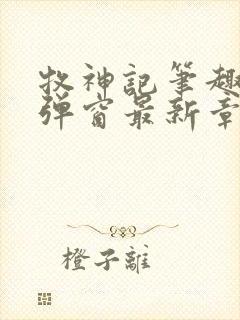 牧神記筆趣
彈窗最新章
橙子離